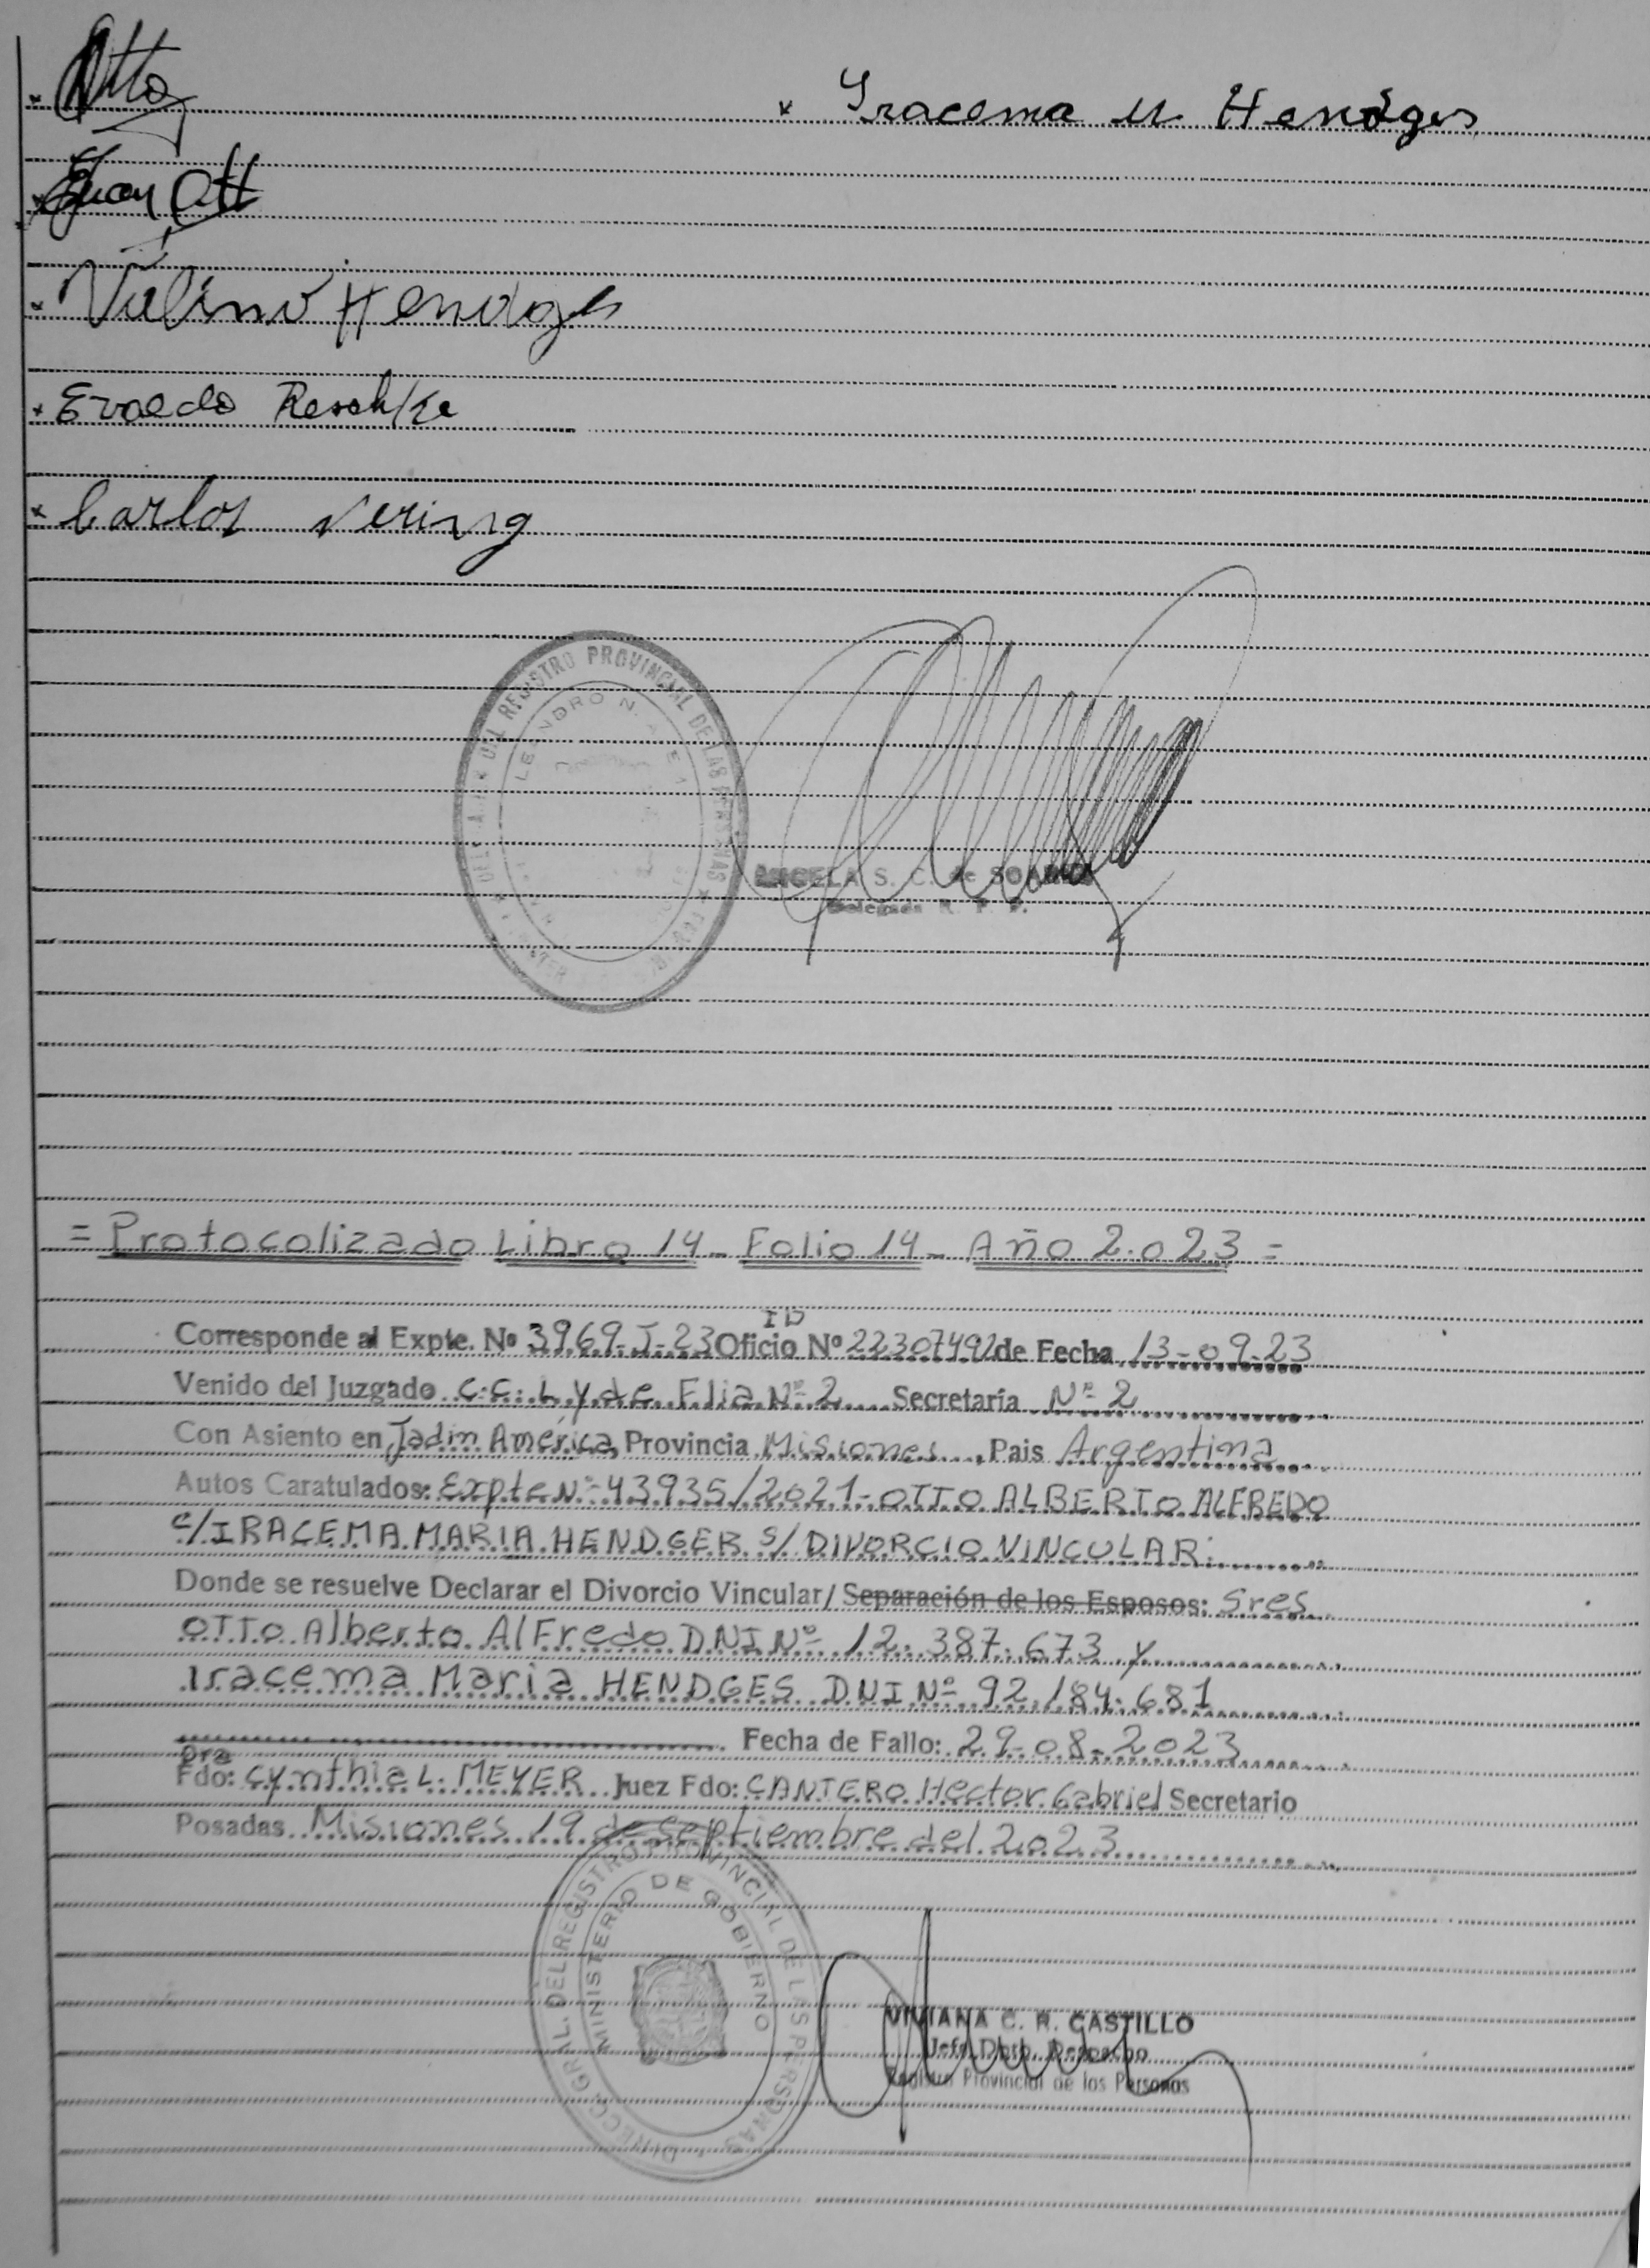 × Otto
× Iracema M Hendges
× Juan Ott
× Valino Hendges
× Evaldo Reschke
× Carlos Nering
DEL REGISTRO PROVINCIAL DE LAS PERSONAS
LEANDRO N. ALEM
ANGELA S. C. de SOARES
Delegada R. P. P.
= Protocolizado Libro 14 - Folio 14 - Año 2.023 =
ID
Corresponde al Expte. Nº 3969-J-23 Oficio Nº 22307492 de Fecha 13-09-23
Venido del Juzgado C.C.L y de Flia Nº 2 Secretaría Nº 2
Con Asiento en Jadin América Provincia Misiones, Pais Argentina
Autos Caratulados: Expte Nº 43935/2021- OTTO ALBERTO ALFREDO
c/ IRACEMA MARIA HENDGER s/ DIVORCIO VINCULAR.
Donde se resuelve Declarar el Divorcio Vincular/ Separación de los Esposos: Sres
OTTO Alberto AlFredo DNI Nº 12.387.673 y
Iracema Maria HENDGES DNI Nº 92.184.681
Fecha de Fallo: 29-08-2023
Dra
Fdo: Cynthia L. MEYER Juez Fdo: CANTERO Hector Gabriel Secretario
Posadas Misiones 19 de Septiembre del 2023
DIRECC. GRAL. DEL REGISTRO PROVINCIAL DE LAS PERSONAS
MINISTERIO DE GOBIERNO
VIVIANA C. R. CASTILLO
Jefe Dpto. Despacho
Registro Provincial de las Personas